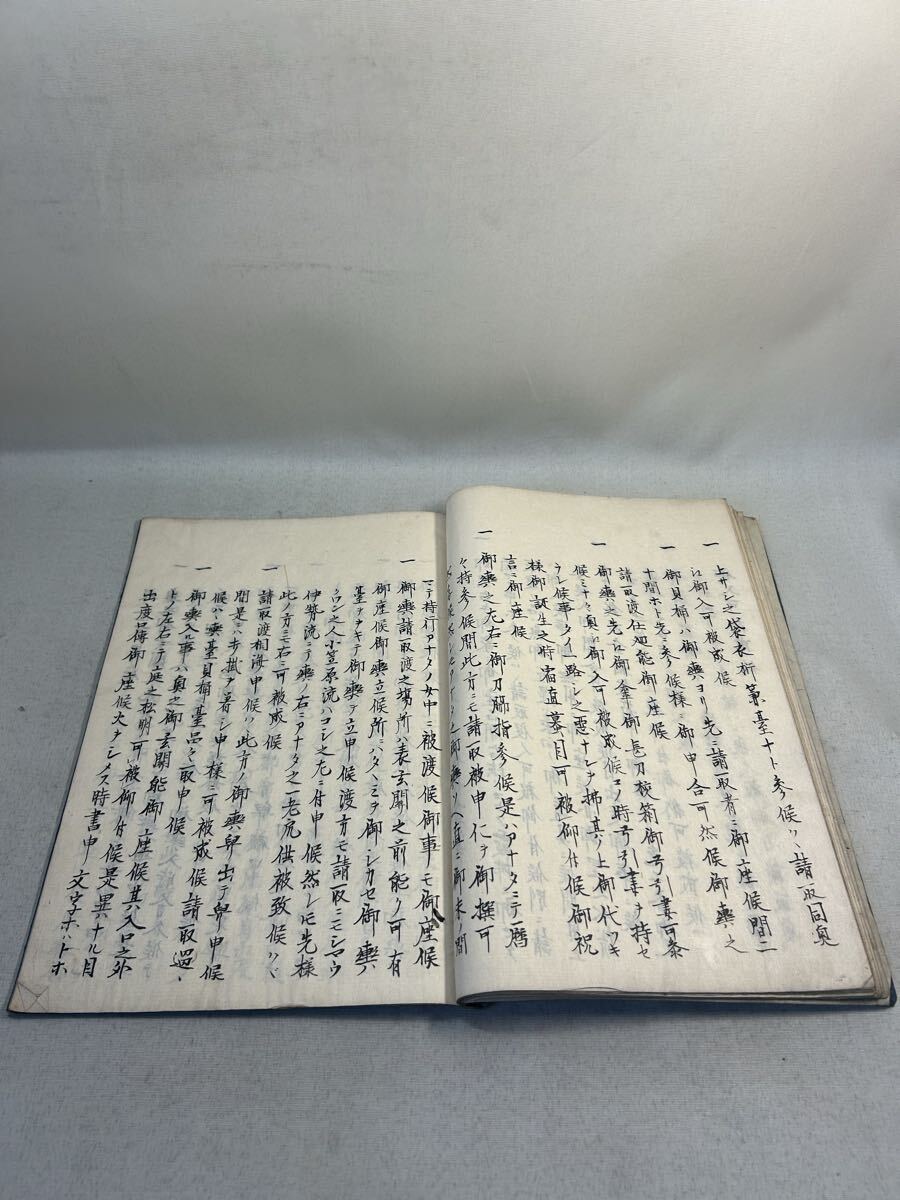 一 上サシ之袋衣桁等臺ナト参候ハヽ請取同奥
江御入可被成候
一 御貝桶ハ御輿ヨリ先ニ請取者ニ御座候間二
十間ホト先ニ参候様ニ御申合可然候御輿之
請取渡仕廻能御座候
一 御輿之先江御傘御長刀挾箱御弓弓臺可参
候ミナ々奥江御入可被成候コノ時弓引臺ナ持セ
ラレ候事タメ一路シノ悪ナシヲ拂其ノ上御代ツキ
様御誕生之時宿直蟇目可被仰付候御祝
言ニ御座候
一 御輿之左右ニ御刀脇指参候是ハアナタニテ暦
々持参候間此方モ請取被申仁ヲ御撰可
御輿ツヘ直ニ御末ノ間
マテ持行アナタノ女中ニ被渡候御事モ御座候
一 御輿請取渡之場所ハ表玄關之前能ク可有
御座候御輿立候所ニハタヽミヲ御シカセ御輿ハ
臺ヲヲキテ御輿ヲ立申候渡方モ請取ニモシヤウ
クワン之人小笠原流ハコシ之左ニ付申候然レ𪜈先様
伊勢流ニテ輿ノ右ニアナタ之一老衆供被致候ハヽ
此ノ方ニモ右ニ可被成候
一 請取渡相濟申候ハヽ此方ノ御輿舁出テ舁申候
間是ニハ歩掛ヲ著シ申ス様ニ可被成候請取過
候ハヽ輿臺貝桶臺品々取申候
一 御輿入ル事ハ奥之御玄關能御座候其ノ入口之外
トノ左右ニテ庭之松明可被仰付候是異ハナル目
出度呂傳御座候火ナシメス時書申文字ホハトホ